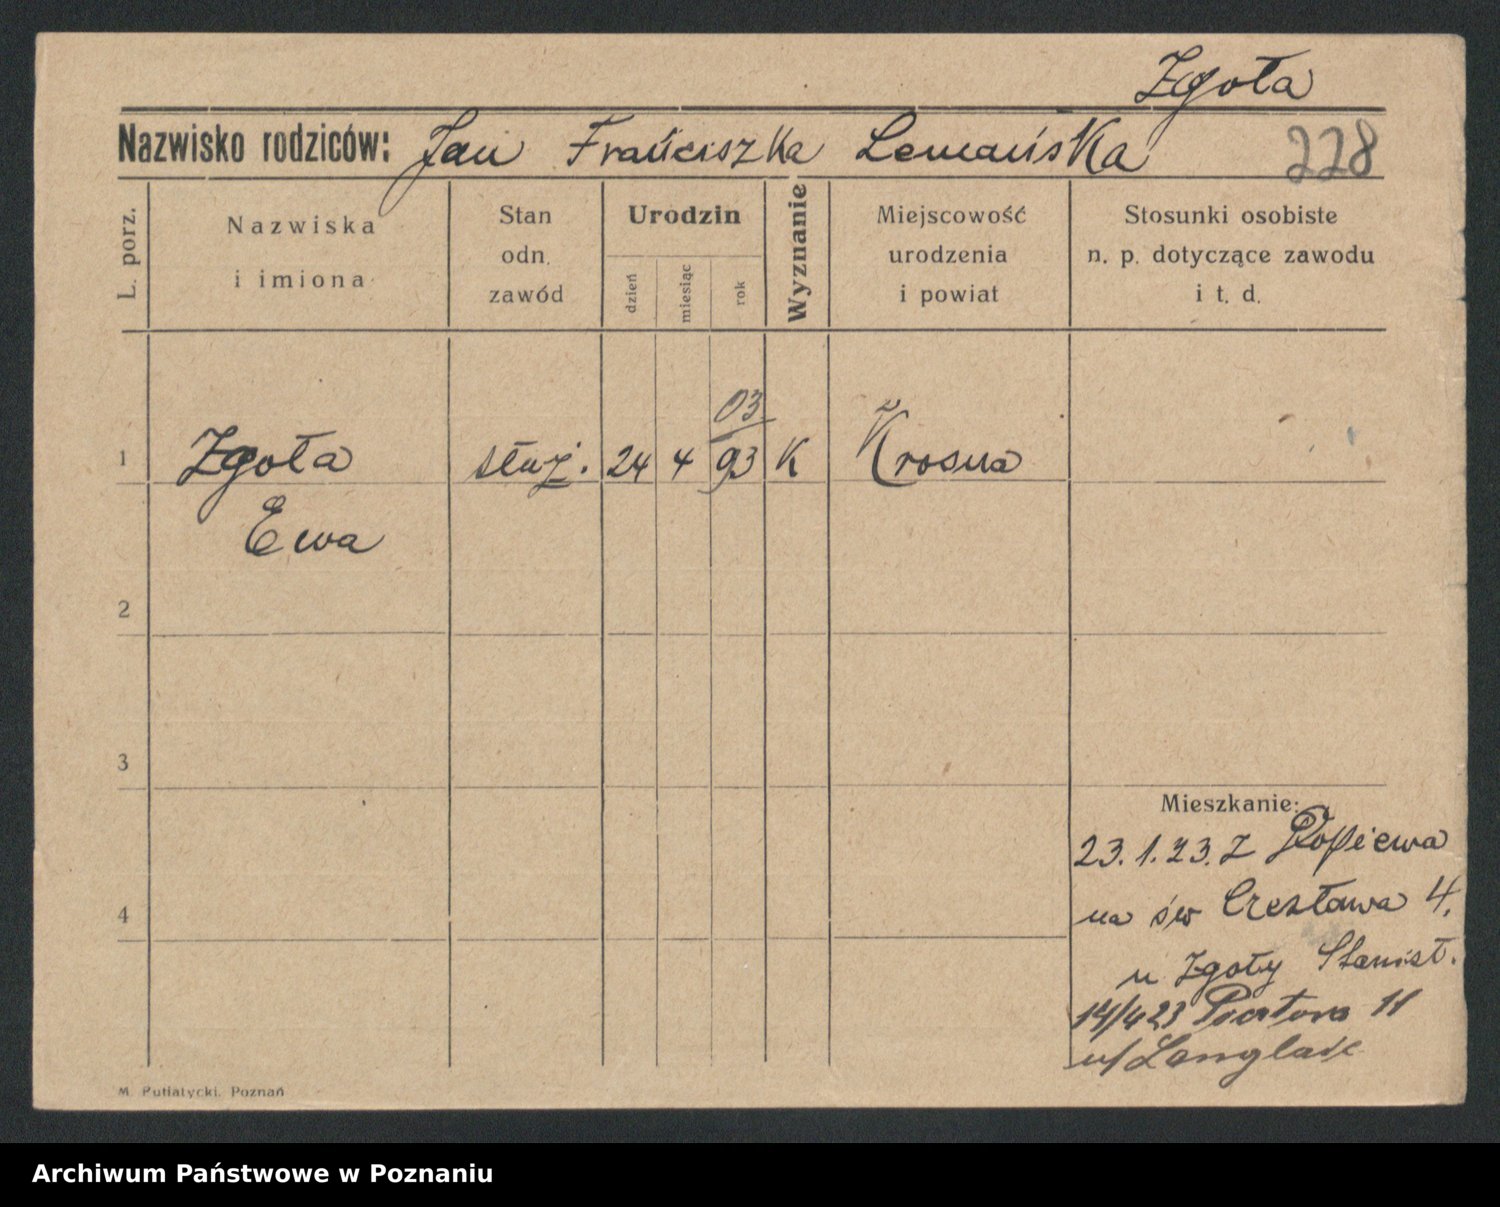 Zgoła
Nazwisko rodziców: Jan Franciszka Lemańska
228
L. porz.
Nazwiska
i imiona
Stan
odn.
zawód
Urodzin
dzień
miesiąc
rok
Wyznanie
Miejscowość
urodzenia
i powiat
Stosunki osobiste
n. p. dotyczące zawodu
i t. d.
03
1 Zgoła służ. 24 4 93 K Krosna
Ewa
2
3
Mieszkanie:
23.1.23. z Dopiewa
4
na św Czesława 4.
u Zgoły Stanisł.
14/4 23 Pocztowa 11
u/
M. Putiatycki, Poznań
Archiwum Państwowe w Poznaniu